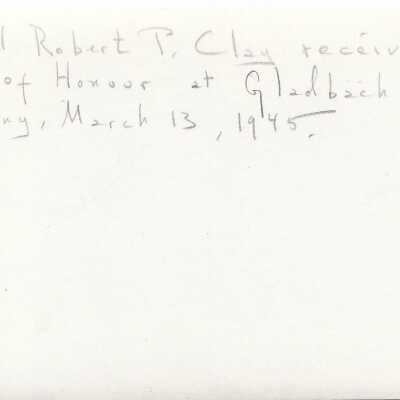 l Robert P. Clay receiv
of Honour at Gladbäch
ny, March 13, 1945.